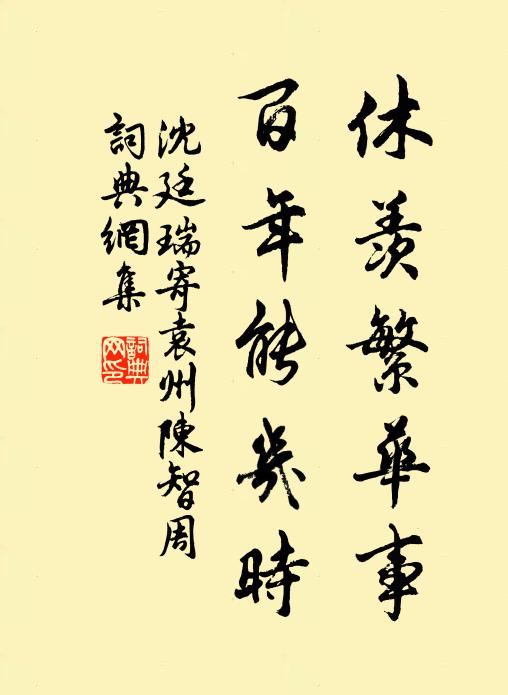 休羨繁華事
百年能幾時
沈廷瑞寄袁州陳智周
詞典網集
詞典
网印